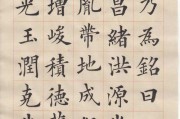 乃為銘曰
昌緒洪源
胤帶地成
增峻積德
光玉潤克